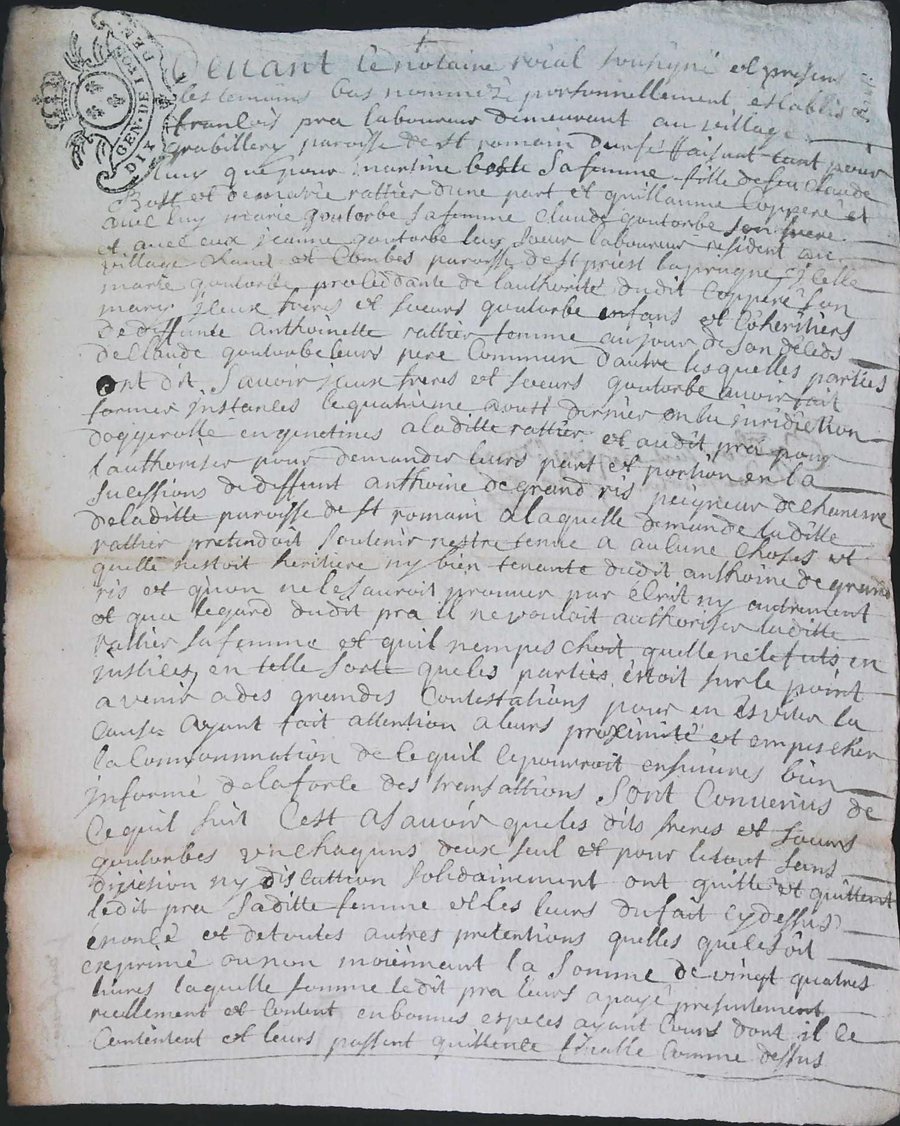 GEN · DE · LION
DIX DEN
Devant le notaire roial sousigné et presens
les temoins bas nommez personnellement establis
francois pra laboureur demeurant au village
grabillery paroisse de st romain durfé ffaisant tant pour
luy que pour martine bost sa femme fille de feu claude
Bost et de marie rattier dune part et guillaume Copperé et
avec luy marie goutorbe sa femme claude goutorbe son frere
et avec eux jeanne goutorbe leur soeur laboureur resident au
village et Combes paroisse de st priest laprugne Icelle
marie goutorbe procedante de lauthorité dudit Copperé son
mary jceux freres et soeurs goutorbe enfans et Coheritiers
de deffunte anthoinette rattier femme au jour de son deceds
de Claude goutorbe leurs pere Commun dautre lesquelles parties
ont dit savoir jceux freres et soeurs goutorbe avoir fait
former jnstances le quatrieme aoust dernier en la juridiction
doggerolle en ginetines a laditte rattier et audit pra pour
lauthoriser pour demander leurs part et portion en la
sucessions de deffunt anthoine de grand ris peigneur de chanvre
de laditte paroisse de st romain a laquelle demande laditte
rattier pretendoit soutenir nestre tenue a aucune choses et
quelle nestoit heritiere ny bien tenante dudit anthoine de grand
ris et quon ne le sauroit prouver par escrit ny autrement
et qua legard dudit pra il ne vouloit authoriser laditte
rattier sa femme et quil nempeschoit quelle ne le futs en
justices en telle sorte que les parties estoit sur le point
avenir a des grandes Contestations pour en esviter la
cause ayant fait attention a leurs proximité et empescher
la Consommation de ce quil ce pouroit ensuivres bien
jnformé de la force des transactions sont Convenus de
Ce quil suit Cest asavoir que les dits freres et soeurs
goutorbes un chaquuns deux seul et pour le tout sans
division ny discuttion solidairement ont quitté et quittent
ledit pra saditte femme et les leurs du fait cy dessus
enoncé et de toutes autres pretentions quelles que ce soit
exprimé ou non moiennant la somme de vingt quatres
livres laquelle somme ledit pra leurs a payé presentement
reellement et Content en bonnes especes ayant Cours dont il ce
Contentent et leurs passent quittence Comme dessus